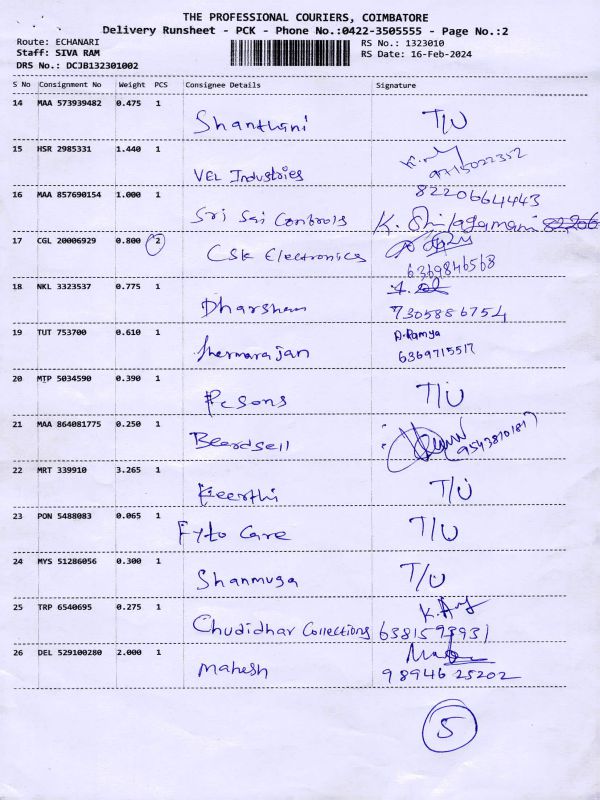 THE PROFESSIONAL COURIERS, COIMBATORE
Delivery Runsheet - PCK - Phone No.:0422-3505555 - Page No.:2
Route: ECHANARI RS No.: 1323010
Staff: SIVA RAM RS Date: 16-Feb-2024
DRS No.: DCJB132301002
S No Consignment No Weight PCS Consignee Details Signature
14 MAA 573939482 0.475 1 Shanthini T/U
15 HSR 2985331 1.440 1 VEL Industries 9715022352
16 MAA 857690154 1.000 1 Sri Sai Controls 8220664443
K. Shilagamani
17 CGL 20006929 0.800 2 CSK Electronics 6369846568
18 NKL 3323537 0.775 1 Dharshan 7305886754
19 TUT 753700 0.610 1 D. Ramya
6369715517
20 MTP 5034590 0.390 1 Pcsons T/U
21 MAA 864081775 0.250 1 Beardsell
22 MRT 339910 3.265 1 Keerthi T/U
23 PON 5488083 0.065 1 Fyto Care T/U
24 MYS 51286056 0.300 1 Shanmuga T/U
25 TRP 6540695 0.275 1 Chudidhar Collections
26 DEL 529100280 2.000 1 Mahesh 98946 25202
5